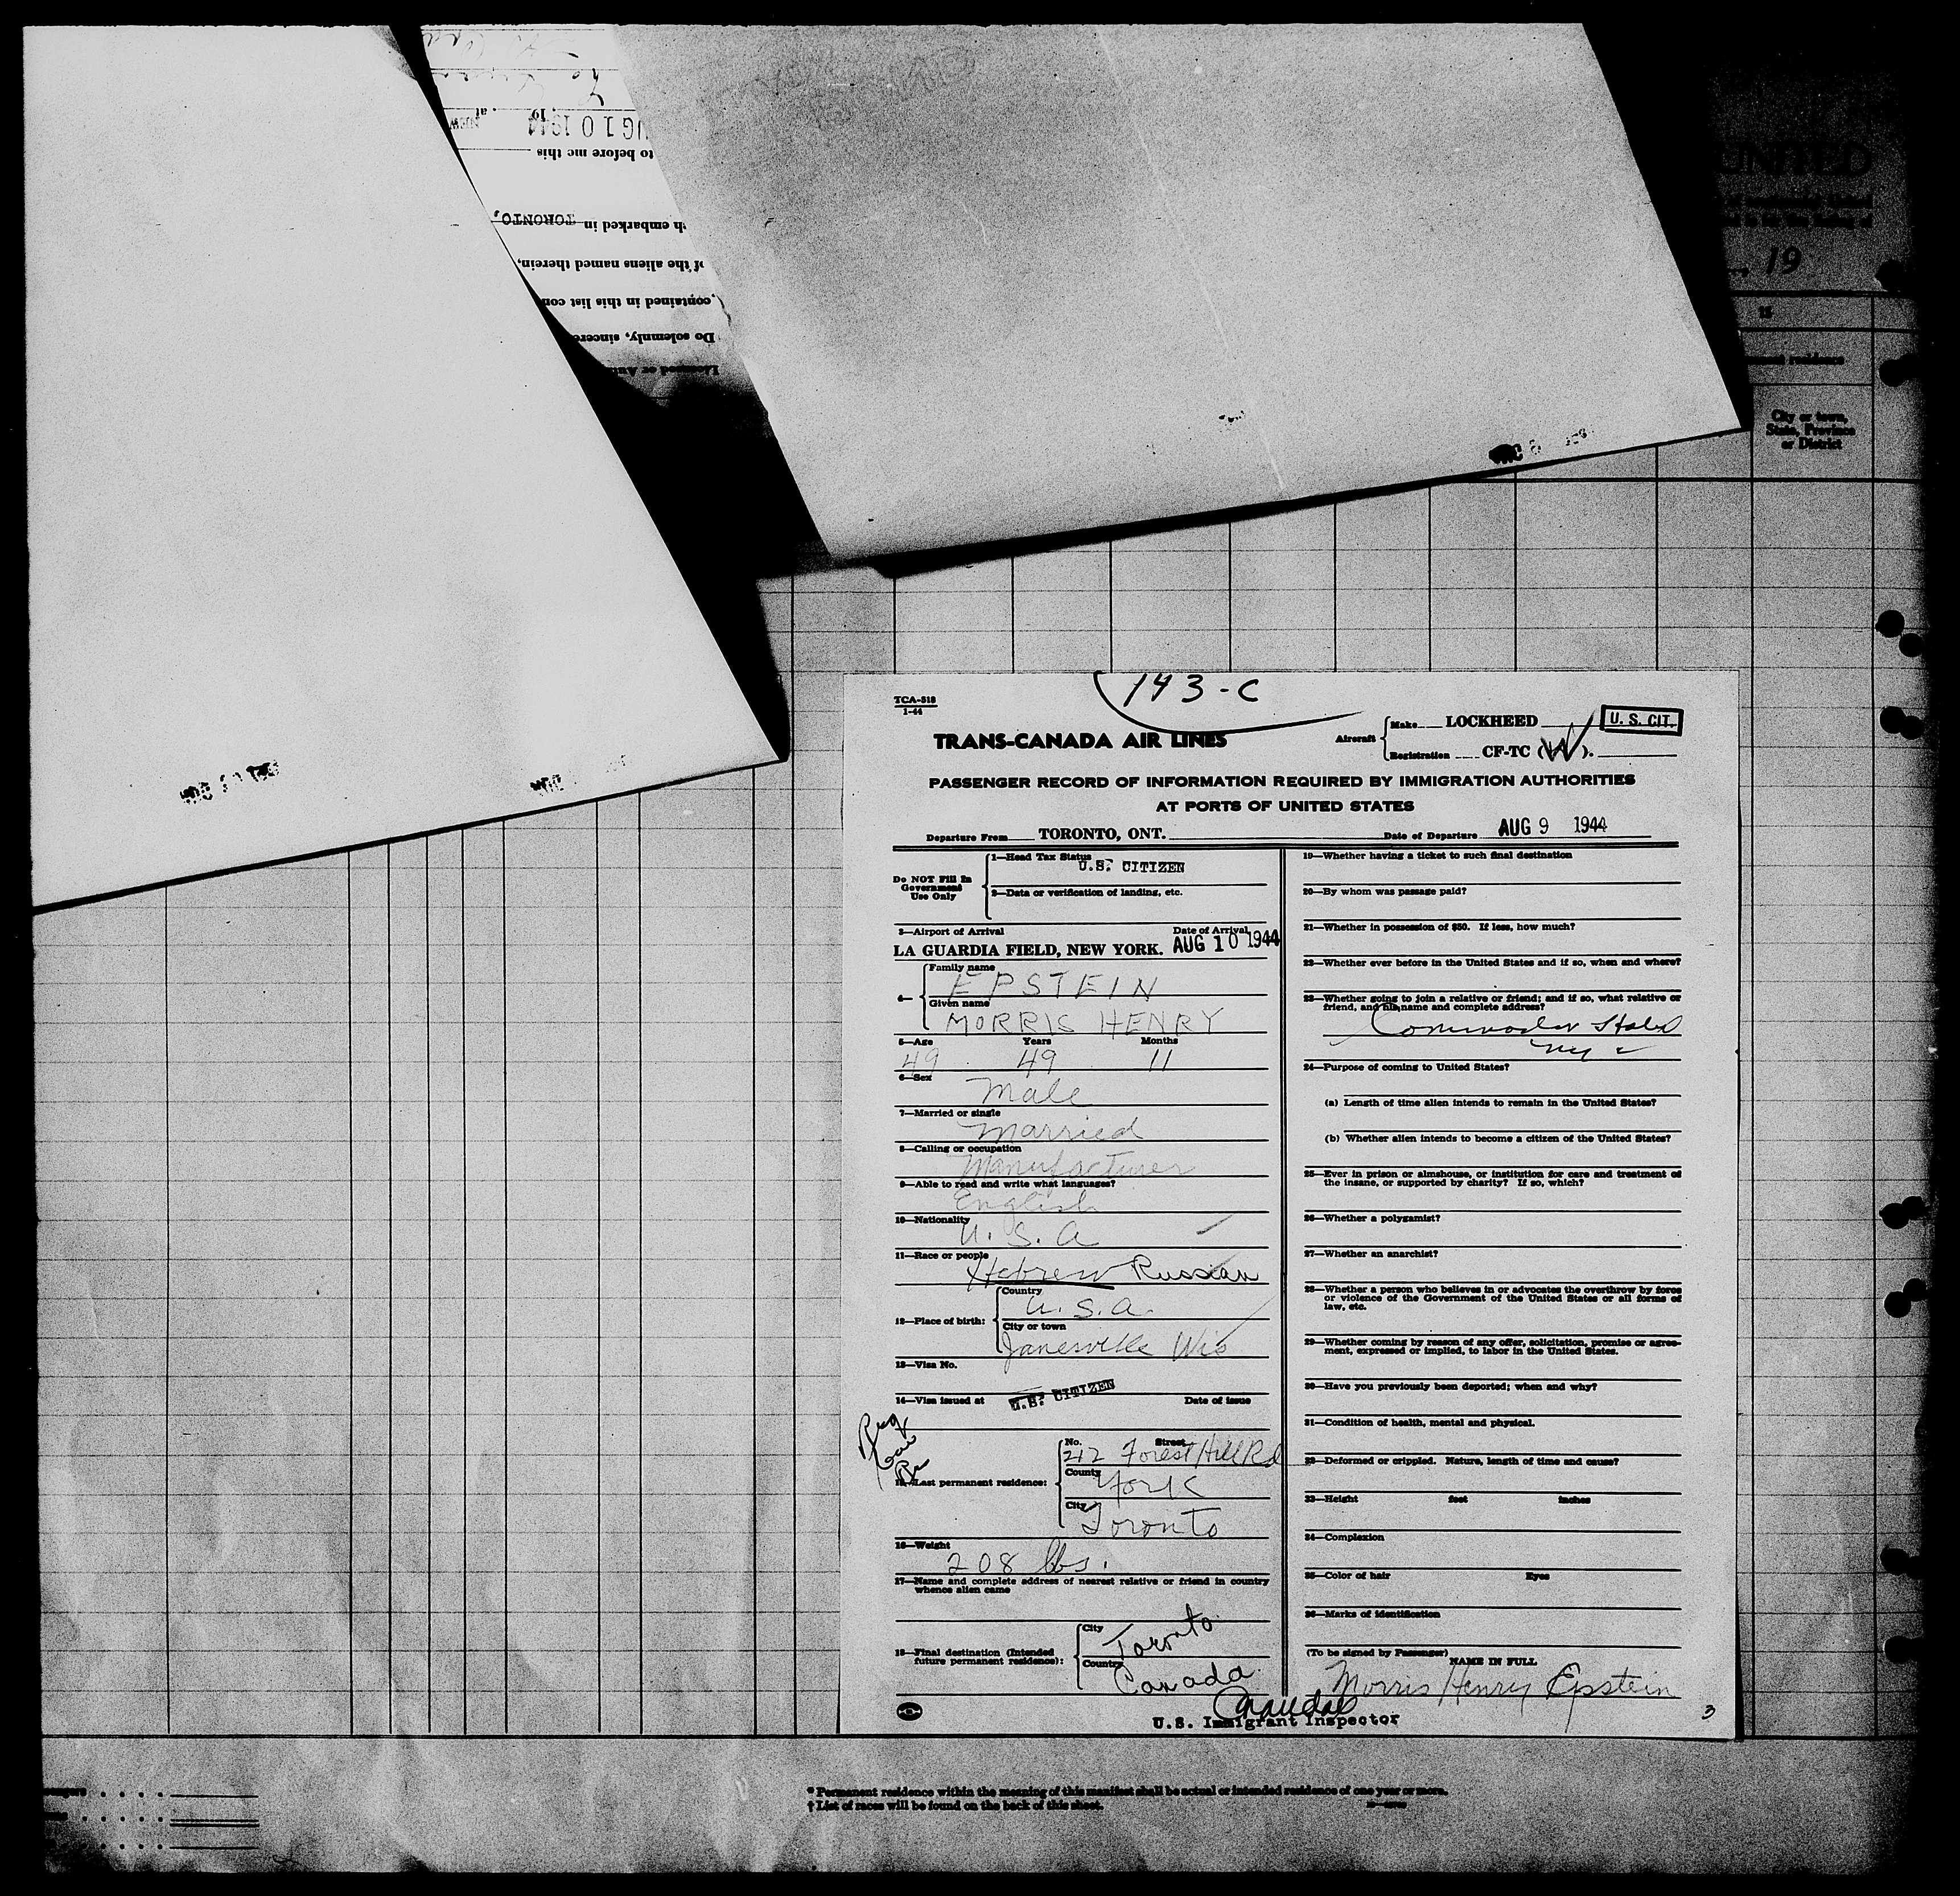 UNITED
19
15
residence
City or town,
State, Province
or District
UG 10 1944
19 , at NEW
to before me this
h embarked in TORONTO,
of the aliens named therein,
contained in this list con
Do solemnly, sincere
Licensed or Au
143-C
TCA-518
1-44
TRANS-CANADA AIR LINES
Aircraft
Make LOCKHEED
U. S. CIT.
Registration CF-TC (W).
PASSENGER RECORD OF INFORMATION REQUIRED BY IMMIGRATION AUTHORITIES
AT PORTS OF UNITED STATES
Departure From TORONTO, ONT. Date of Departure AUG 9 1944
Do NOT Fill In
Government
Use Only
1—Head Tax Status
U.S. CITIZEN
2—Data or verification of landing, etc.
3—Airport of Arrival Date of Arrival
LA GUARDIA FIELD, NEW YORK. AUG 10 1944
4—
Family name
EPSTEIN
Given name
MORRIS HENRY
5—Age Years Months
49 49 11
6—Sex
Male
7—Married or single
Married
8—Calling or occupation
Manufacturer
9—Able to read and write what languages?
English
10—Nationality
U. S. A
11—Race or people
Hebrew Russian
12—Place of birth:
Country
U.S.A.
City or town
Janesville Wis
13—Visa No.
14—Visa issued at U.S. CITIZEN Date of issue
15—Last permanent residence:
No. Street
212 Forest Hill Rd
County
York
City
Toronto
16—Weight
208 lbs.
17—Name and complete address of nearest relative or friend in country
whence alien came
18—Final destination (Intended
future permanent residence):
City
Toronto
Country
Canada
19—Whether having a ticket to such final destination
20—By whom was passage paid?
21—Whether in possession of $50. If less, how much?
22—Whether ever before in the United States and if so, when and where?
23—Whether going to join a relative or friend; and if so, what relative or
friend, and his name and complete address?
Commodor Hotel
NY c
24—Purpose of coming to United States?
(a) Length of time alien intends to remain in the United States?
(b) Whether alien intends to become a citizen of the United States?
25—Ever in prison or almshouse, or institution for care and treatment of
the insane, or supported by charity? If so, which?
26—Whether a polygamist?
27—Whether an anarchist?
28—Whether a person who believes in or advocates the overthrow by force
or violence of the Government of the United States or all forms of
law, etc.
29—Whether coming by reason of any offer, solicitation, promise or agree-
ment, expressed or implied, to labor in the United States.
30—Have you previously been deported; when and why?
31—Condition of health, mental and physical.
32—Deformed or crippled. Nature, length of time and cause?
33—Height feet inches
34—Complexion
35—Color of hair Eyes
36—Marks of identification
(To be signed by Passenger)
NAME IN FULL
Morris Henry Epstein
U.S. Immigrant Inspector
3
* Permanent residence within the meaning of this manifest shall be actual or intended residence of one year or more.
† List of races will be found on the back of this sheet.